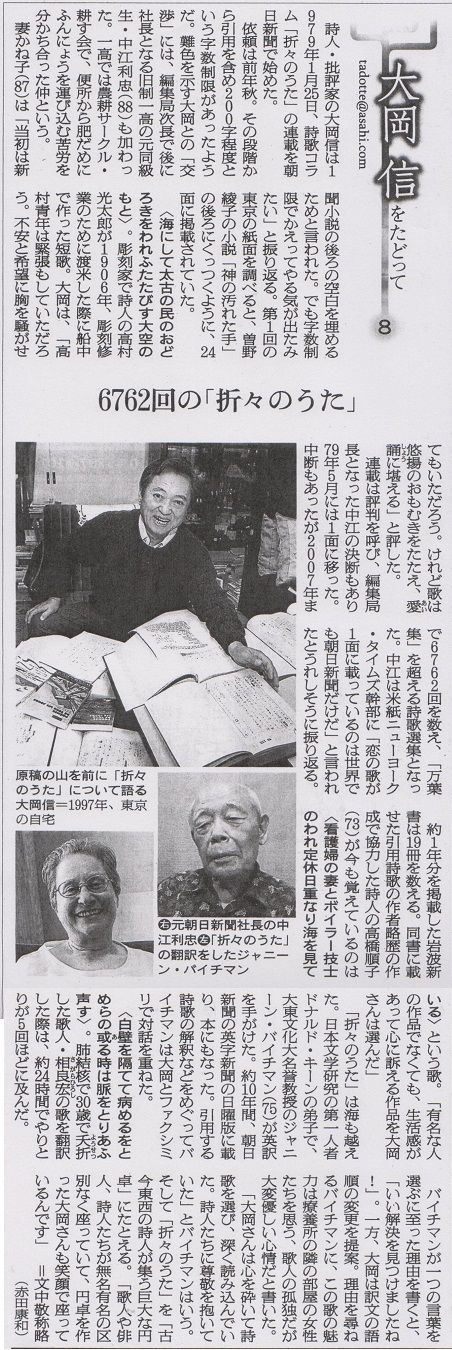 大岡信をたどって
8
tadotte@asahi.com
詩人・批評家の大岡信は1
979年1月25日、詩歌コラ
ム「折々のうた」の連載を朝
日新聞で始めた。
依頼は前年秋。その段階か
ら引用を含め200字程度と
いう字数制限があったよう
だ。難色を示す大岡との「交
渉」には、編集局次長で後に
社長となる旧制一高の元同級
生・中江利忠(88)も加わっ
た。一高では農耕サークル・
耕す会で、便所から肥だめに
ふんにょうを運び込む苦労を
分かち合った仲という。
妻かね子(87)は「当初は新
聞小説の後ろの空白を埋める
ためと言われた。でも字数制
限でかえってやる気が出たみ
たい」と振り返る。第1回の
東京の紙面を調べると、曽野
綾子の小説「神の汚れた手」
の後ろにくっつくように、24
面に掲載されていた。
〈海にして太古の民のおど
ろきをわれふたたびす大空の
もと〉。彫刻家で詩人の高村
光太郎が1906年、彫刻修
業のために渡米した際に船中
で作った短歌。大岡は、「高
村青年は緊張もしていただろ
う。不安と希望に胸を騒がせ
6762回の「折々のうた」
てもいただろう。けれど歌は
悠揚のおもむきをたたえ、愛
誦に堪える」と評した。
連載は評判を呼び、編集局
長となった中江の決断もあり
79年5月には1面に移った。
中断もあったが2007年ま
で6762回を数え、「万葉
集」を超える詩歌選集となっ
た。中江は米紙ニューヨーク
・タイムズ幹部に「恋の歌が
1面に載っているのは世界で
も朝日新聞だけだ」と言われ
たとうれしそうに振り返る。
約1年分を掲載した岩波新
書は19冊を数える。同書に載
せた引用詩歌の作者略歴の作
成で協力した詩人の高橋順子
(73)が今も覚えているのは
〈看護婦の妻とボイラー技士
のわれ定休日重なり海を見て
原稿の山を前に「折々
のうた」について語る
大岡信=1997年、東京
の自宅
㊨元朝日新聞社長の中
江利忠㊧「折々のうた」
の翻訳をしたジャニー
ン・バイチマン
いる〉という歌。「有名な人
の作品でなくても、生活感が
あって心に訴える作品を大岡
さんは選んだ」
「折々のうた」は海も越え
た。日本文学研究の第一人者
ドナルド・キーンの弟子で、
大東文化大名誉教授のジャニ
ーン・バイチマン(75)が英訳
を手がけた。約10年間、朝日
新聞の英字新聞の日曜版に載
り、本にもなった。引用する
詩歌の解釈などをめぐってバ
イチマンは大岡とファクシミ
リで対話を重ねた。
〈白壁を隔てて病めるをと
めらの或る時は脈をとりあふ
声す〉。肺結核で30歳で夭折
した歌人・相良宏の歌を翻訳
した際は、約24時間でやりと
りが5回ほどに及んだ。
バイチマンが一つの言葉を
選ぶに至った理由を書くと、
「いい解決を見つけましたね
!」。一方、大岡は訳文の語
順の変更を提案。理由を尋ね
るバイチマンに、この歌の魅
力は療養所の隣の部屋の女性
たちを思う、歌人の孤独だが
大変優しい心情だと書いた。
「大岡さんは心を砕いて詩
歌を選び、深く読み込んでい
た。詩人たちに尊敬を抱いて
いた」とバイチマンはいう。
そして「折々のうた」を「古
今東西の詩人が集う巨大な円
卓」にたとえる。「歌人や俳
人、詩人たちが無名有名の区
別なく座っていて、円卓を作
った大岡さんも笑顔で座って
いるんです」 =文中敬称略
(赤田康和)